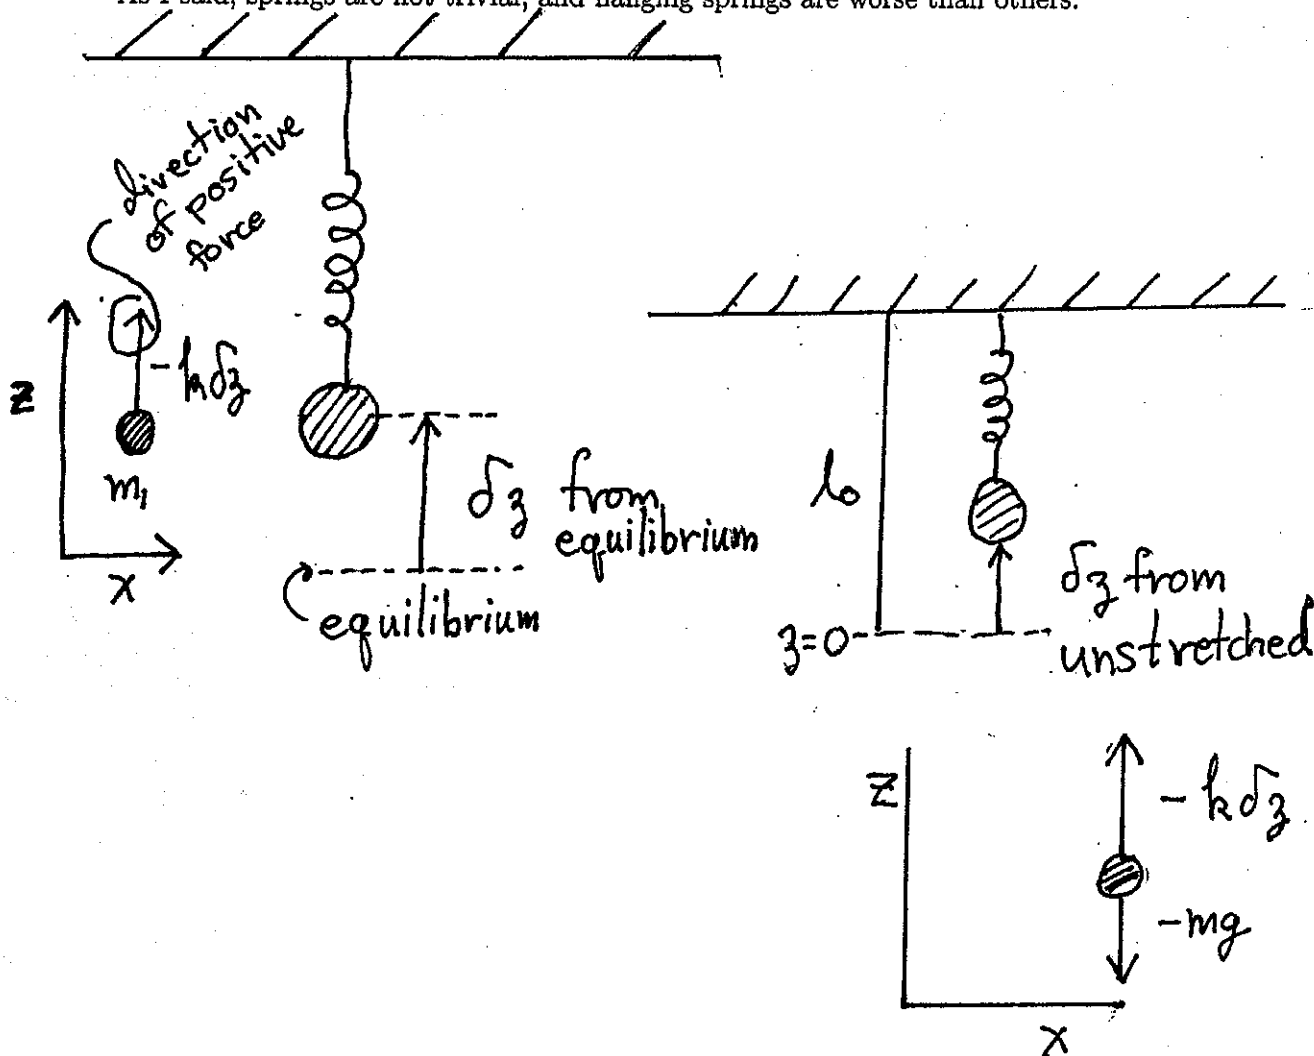 As I said, springs are not trivial, and hanging springs are worse than others.
direction
of positive
force
z
-kδz
m₁
x
δz from
equilibrium
equilibrium
l₀
z=0
δz from
unstretched
z
-kδz
-mg
x